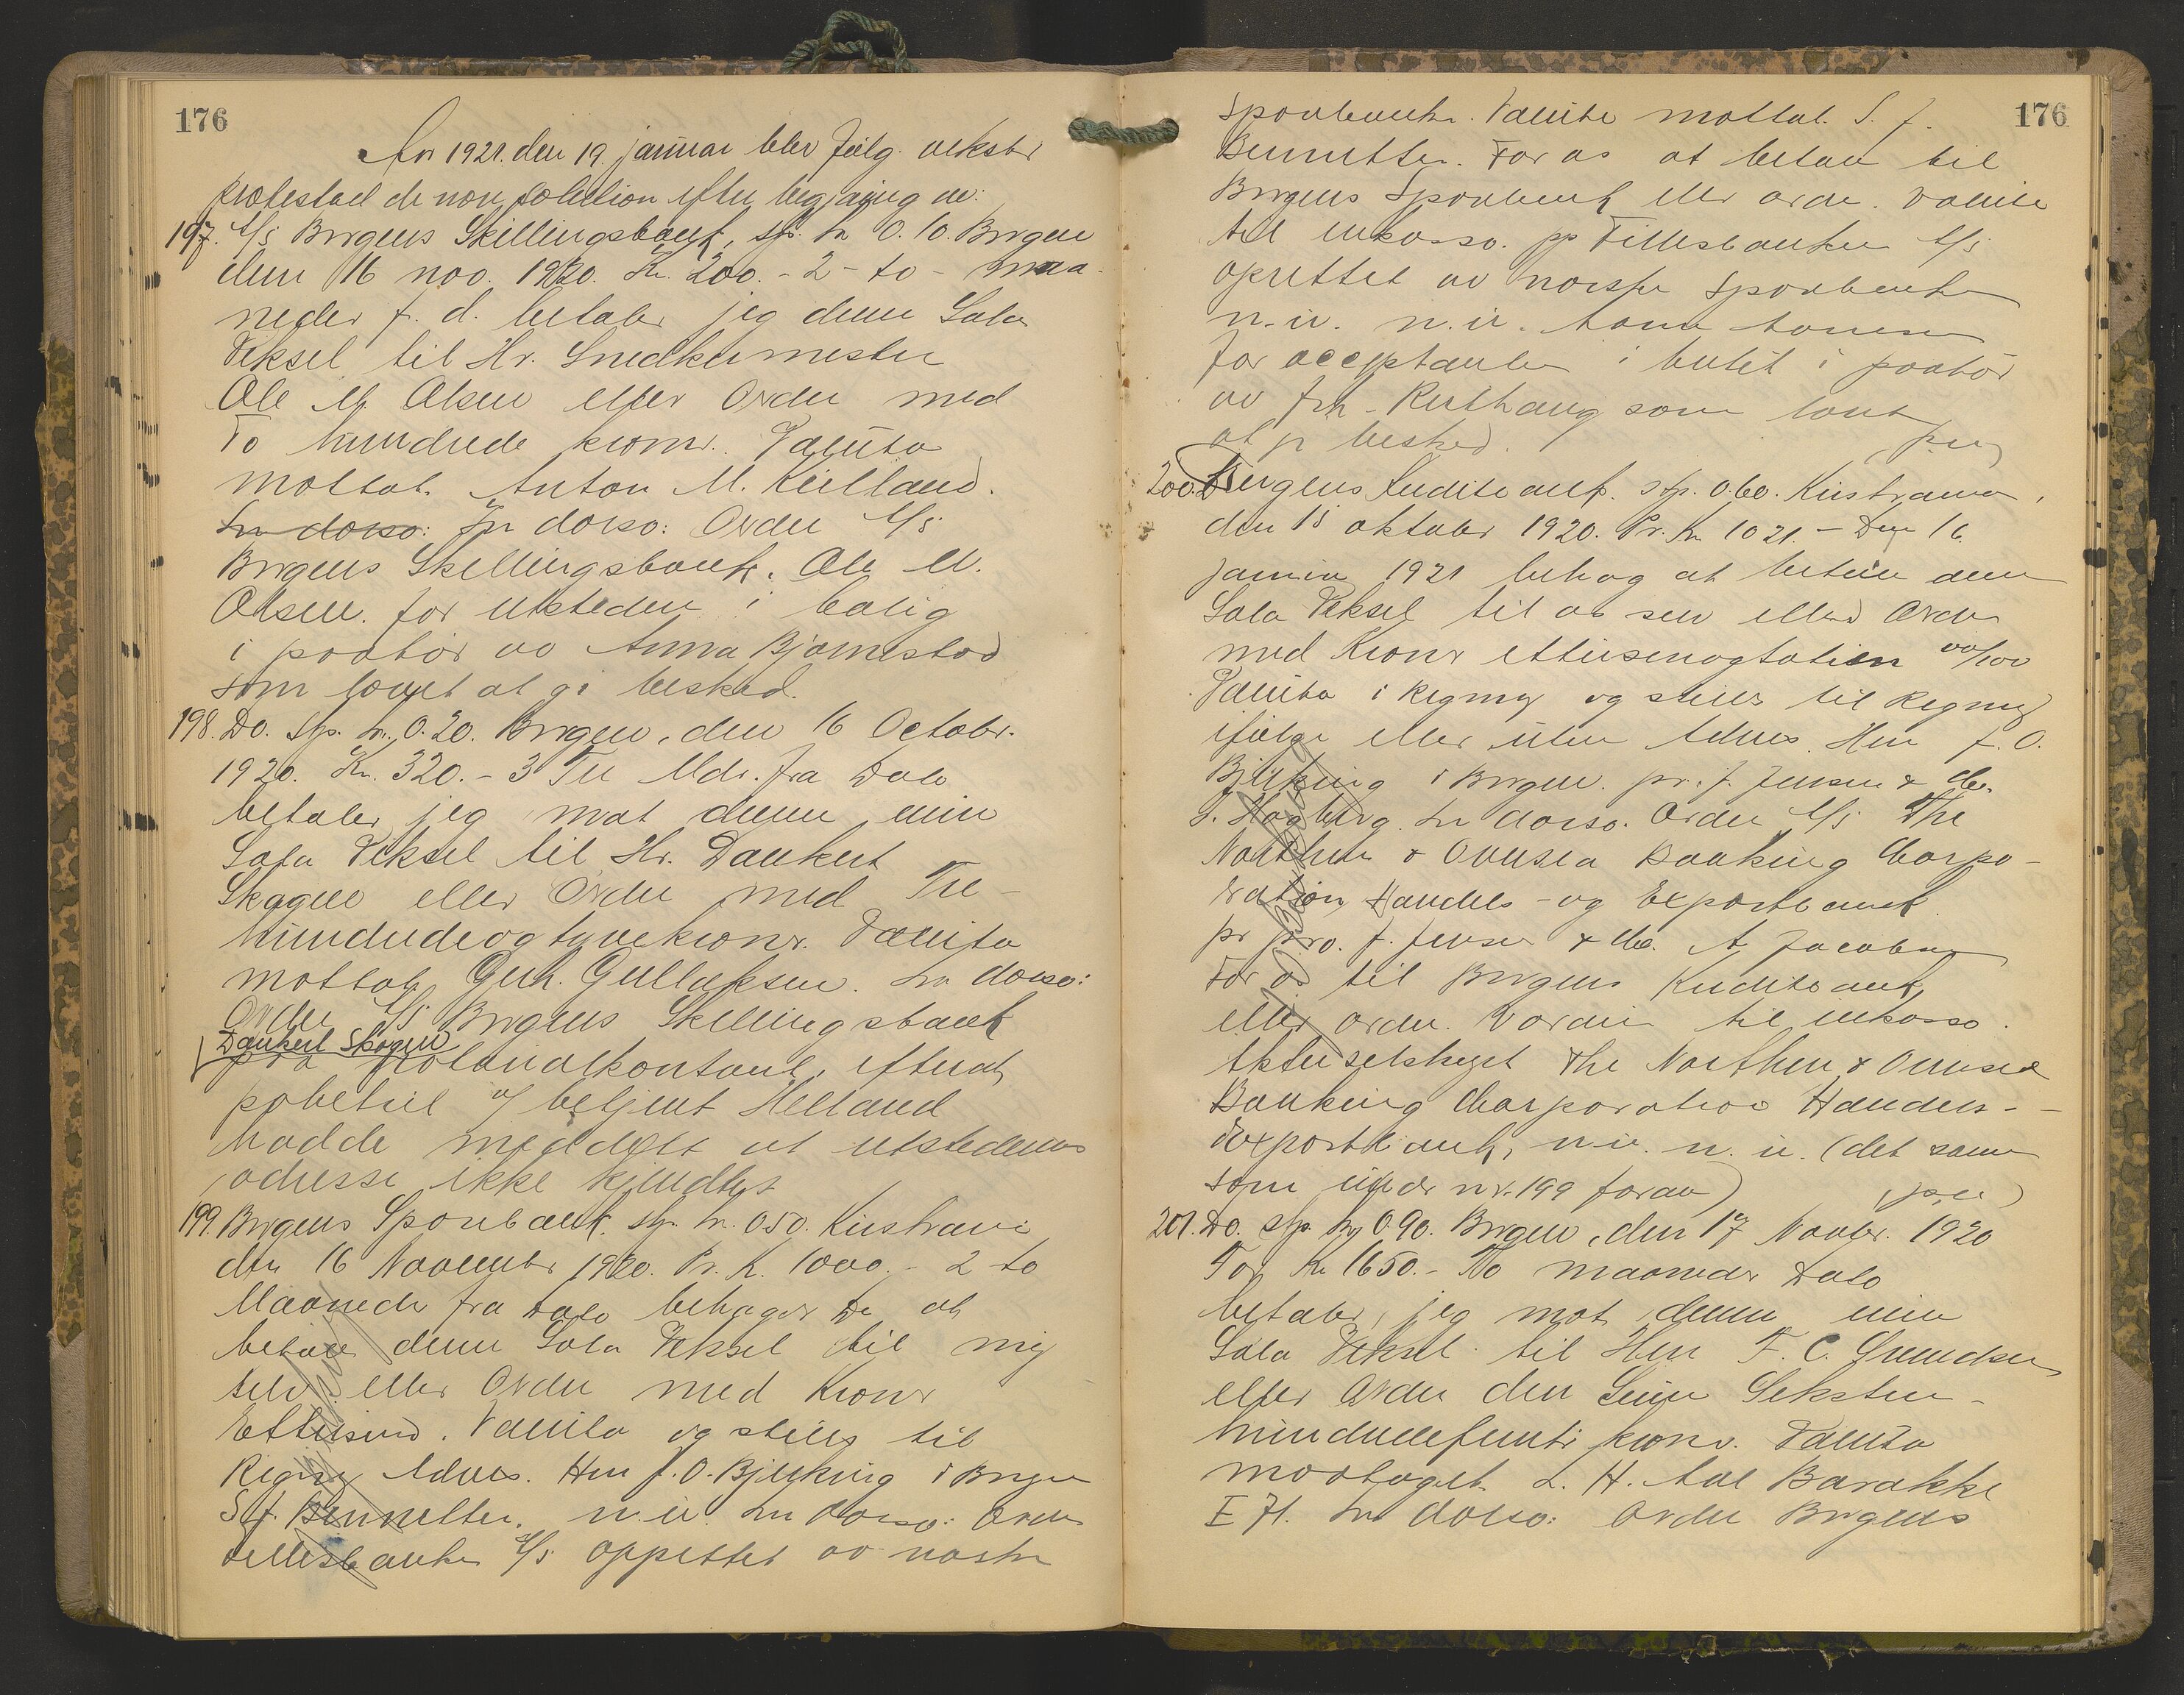 176
An 1921. den 19. januar blev følg. veksler
protestert de non solution efter begjæring av:
197. A/S Bergens Skillingsbank, stp. Kr 0.10. Bergen
den 16 nov. 1920. Kr. 200.- 2- to - maa-
neder f. d. betaler jeg denne Sola
Veksel til Hr. Snedkermester
Ole M. Olsen eller Order med
To hundrede kroner. Valuta
mottat. Anton M. Kielland.
In dorso: In dorso: Order A/S
Bergens Skillingsbank. Ole M.
Olsen. for utstederen i bolig
i paahør av Anna Bjørnestad
som lovet at gi besked.
198. Do. stp. kr. 0.20. Bergen, den 16 October.
1920. Kr. 320.- 3 Tre Mdr. fra Dato
betaler jeg mot denne min
Sola Veksel til Hr. Dankert
Skagen eller Order med Tre-
hundredeogtyvekroner. Valuta
mottat. Gullaksen. In dorso:
Order A/S Bergens Skillingsbank
Dankert Skagen
paa notarialkontoret, efterat
politiet v/ betjent Helland
hadde meddelt at utstederens
adresse ikke kjendtes
199. Bergens Sparebank. stp. kr. 050. Kristiania
den 16 November 1920. Pr. K. 1000.- 2 to
Maaneder fra Dato behager De at
betale denne Sola Veksel til mig
selv eller Order med Kroner
Ettusind. Valuta og stilles til
Regning Advis. Herr J. O. Bjerking i Bergen
S. J. n. ü. In dorso: Order
Fellesbanken A/S oprettet av norske
176
Sparebanker. Valuta mottat. S. J.
For os at betale til
Bergens Sparebank eller order. Valuta
til inkasso. pp Fellesbanken A/S
oprettet av norske Sparebanker
n. ü. n. ü.
for acceptanten i i paahør
av frk. som lovet
at gi besked.
200. Bergens Kreditbank. stp. 0.60. Kristiania,
den 15 oktober 1920. Pr. Kr. 1021.- Den 16.
januar 1921 behag at betale denne
Sola Veksel til os selv eller Order
med Kroner ettusenogtoti en 00/100
Valuta i Regning og stilles til Regning
ifølge eller uten Advis. Herr J. O.
Bjerking i Bergen. pr. J. Jensen & Co.
J. Høgberg. In dorso. Order A/S The
Northern & Oversea Banking Corpo-
ration Handels- og Exportbank.
pr pro. J. Jensen & Co. A. Jacobsen
For os til Bergens Kreditbank
eller order. Værdien til inkasso.
Aktieselskapet The Northern & Oversea
Banking Corporation Handels-
Exportbank, n. ü. n. ü. (det samme
som under nr. 199 foran)
201. Do. stp. kr 0.90. Bergen, den 17 Novbr. 1920
For Kr 1650.- To maaneder Dato
betaler jeg mot denne min
Sola Veksel til Herr F. C.
eller Order den Sum Seksten-
hundredefemti kroner. Valuta
modtaget. L. H. Aal Barakke
In dorso: Order Bergens